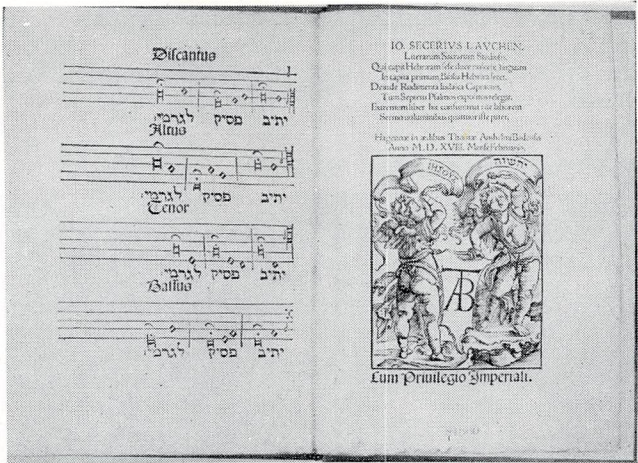 Discantus
יתיב פסיק לגרמי׃
Altus
יתיב פסיק לגרמי׃
Tenor
יתיב פסיק לגרמי׃
Bassus
יתיב פסיק לגרמי׃
IO. SECERIVS LAVCHEN.
Literarum Sacrarum Studiosis,
Qui cupit Hebræam sese duce noscere linguam
primum Biblia Hebræa feret,
Deinde Rudimenta Iudaica Capnionis,
Tum Septem Psalmos relegat.
Extremum liber hic laborem
uoluminibus quattuor iste
Hagenoæ in ædibus Thomæ Anshelmi Badensis
Anno M. D. XVIII. Mense Februario.
יהשוה
AB
Cum Priuilegio Imperiali.